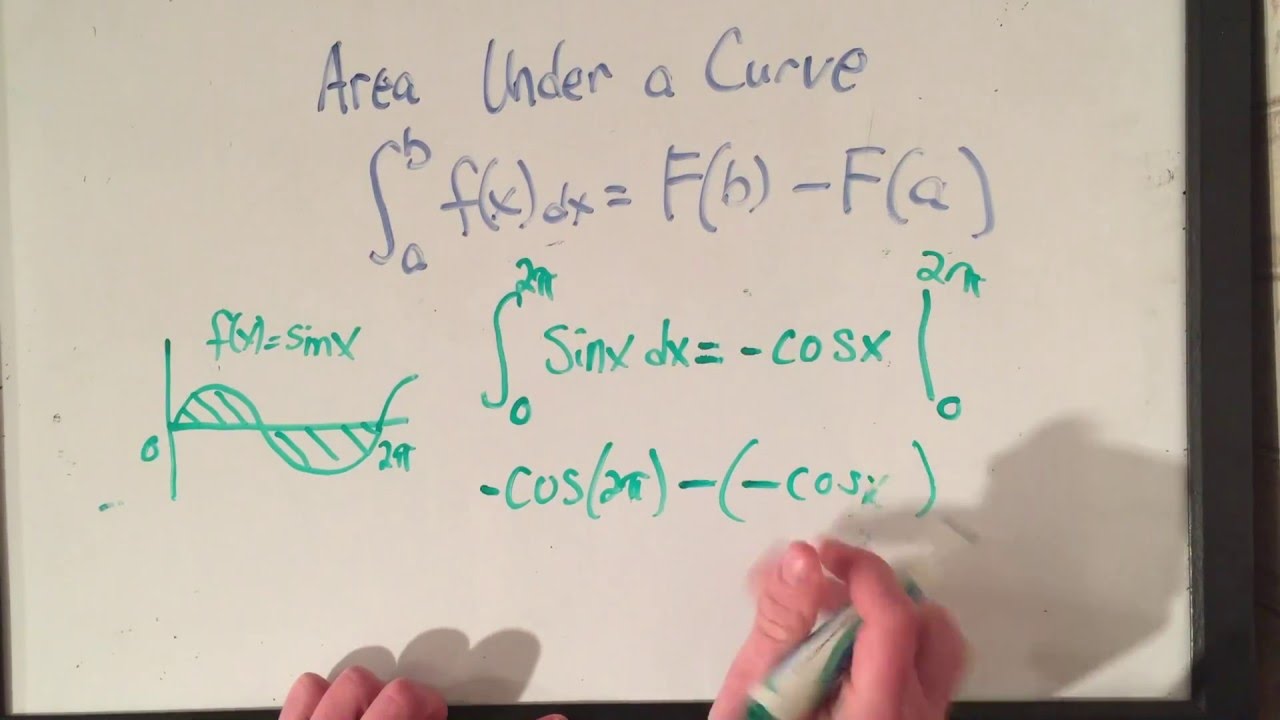 Area Under a Curve
∫_a^b f(x) dx = F(b) - F(a)
f(x) = sinx
0
2π
∫_0^{2π} sinx dx = -cosx |_0^{2π}
-cos(2π) - (-cosx )